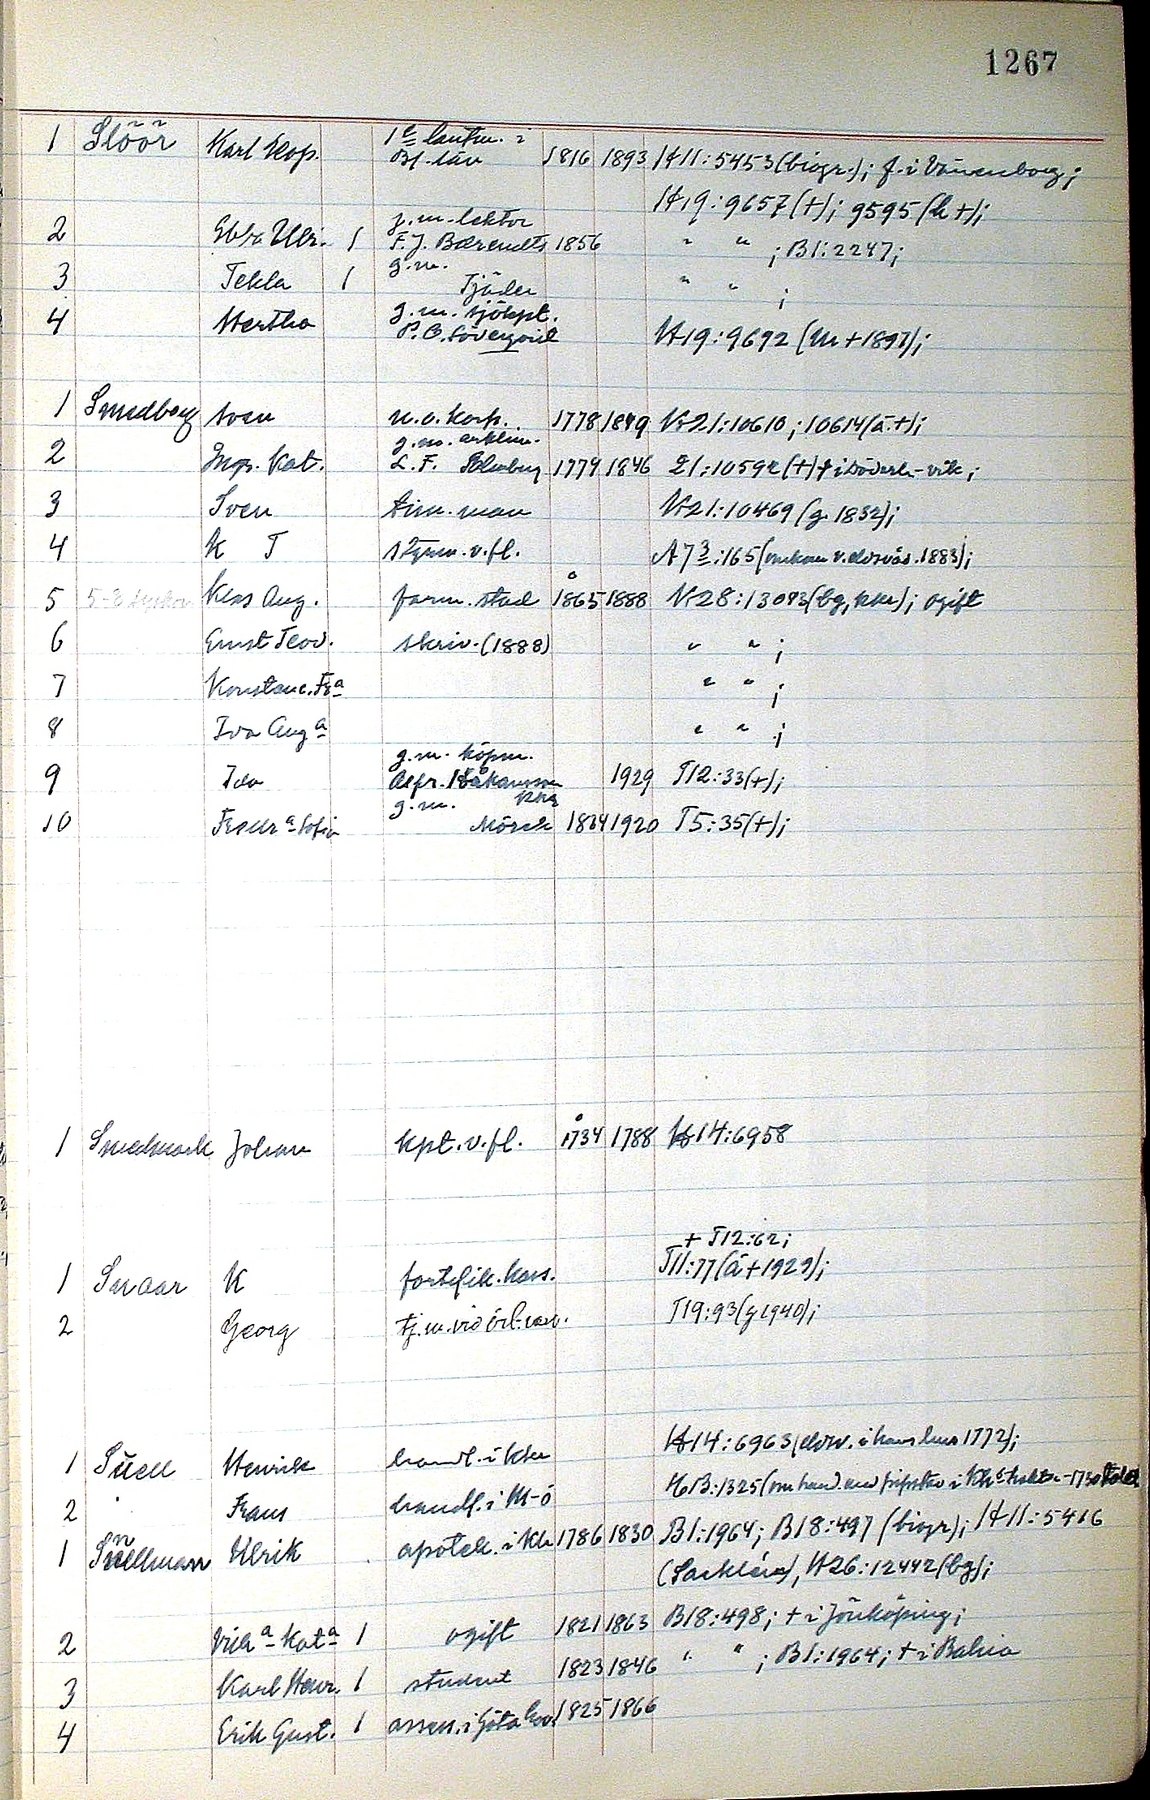 1267
1 Slöör Karl Kop. 1e lantm. i Bl. län 1816 1893 H11:5453 (biogr.); f. i Vänersborg;
H19:9657 (+); 9595 (h +);
2 Ebba Ulr. 1 g.m. lektor F.J. Bærendts 1856 " " ; B1:2247;
3 Tekla 1 g.m. Tjäder " " ;
4 Hertha g.m. sjökpt. P.G. Lövegrist H19:9692 (m + 1897);
1 Smedberg Sven u.o. kork. 1778 1849 V21:10610; 10614 (ä +);
2 Inga. Kat. g.m. L.F. 1779 1846 21:10592 (+) + i
3 Sven tim. man V21:10469 (g. 1832);
4 K T styrm. v. fl. A73:165 (omkom v. 1883);
5 5-8 syskon Klas Aug. farm. stud 1865 1888 V28:13093 (bg, kkr); ogift
6 Ernst Teod. skriv. (1888) " " ;
7 Konstanc. Fra " " ;
8 Iva Aug a " " ;
9 Ida g.m. köpm. Alfr. Håkansson Kkr 1929 T12:33 (+);
10 Fredr a Sofia g.m. Mörck 1834 1920 T5:35 (+);
1 Smedmark Johan kpt. v. fl. 1734 1788 H14:6958
+ T12:62;
1 Smaar K fortifik. kass. T11:77 (ä + 1929);
2 Georg tj.m. vid örl. T19:93 (g 1940);
1 Snell Henrik handl. i Kkr H14:6963 (eldsv. i hans hus 1772);
2 Frans handl. i M-ö B:1325 (om
1 Snellman Ulrik apotek. i Kkr 1786 1830 B1:1964; B18:497 (biogr); H11:5416
H26:12442 (bg);
2 Vilh a Kat a 1 ogift 1821 1863 B18:498; + i Jönköping;
3 Karl Henr. 1 student 1823 1846 " " ; B1:1964; + i Bahia
4 Erik Gust. 1 assess. i Göta hov. 1825 1866